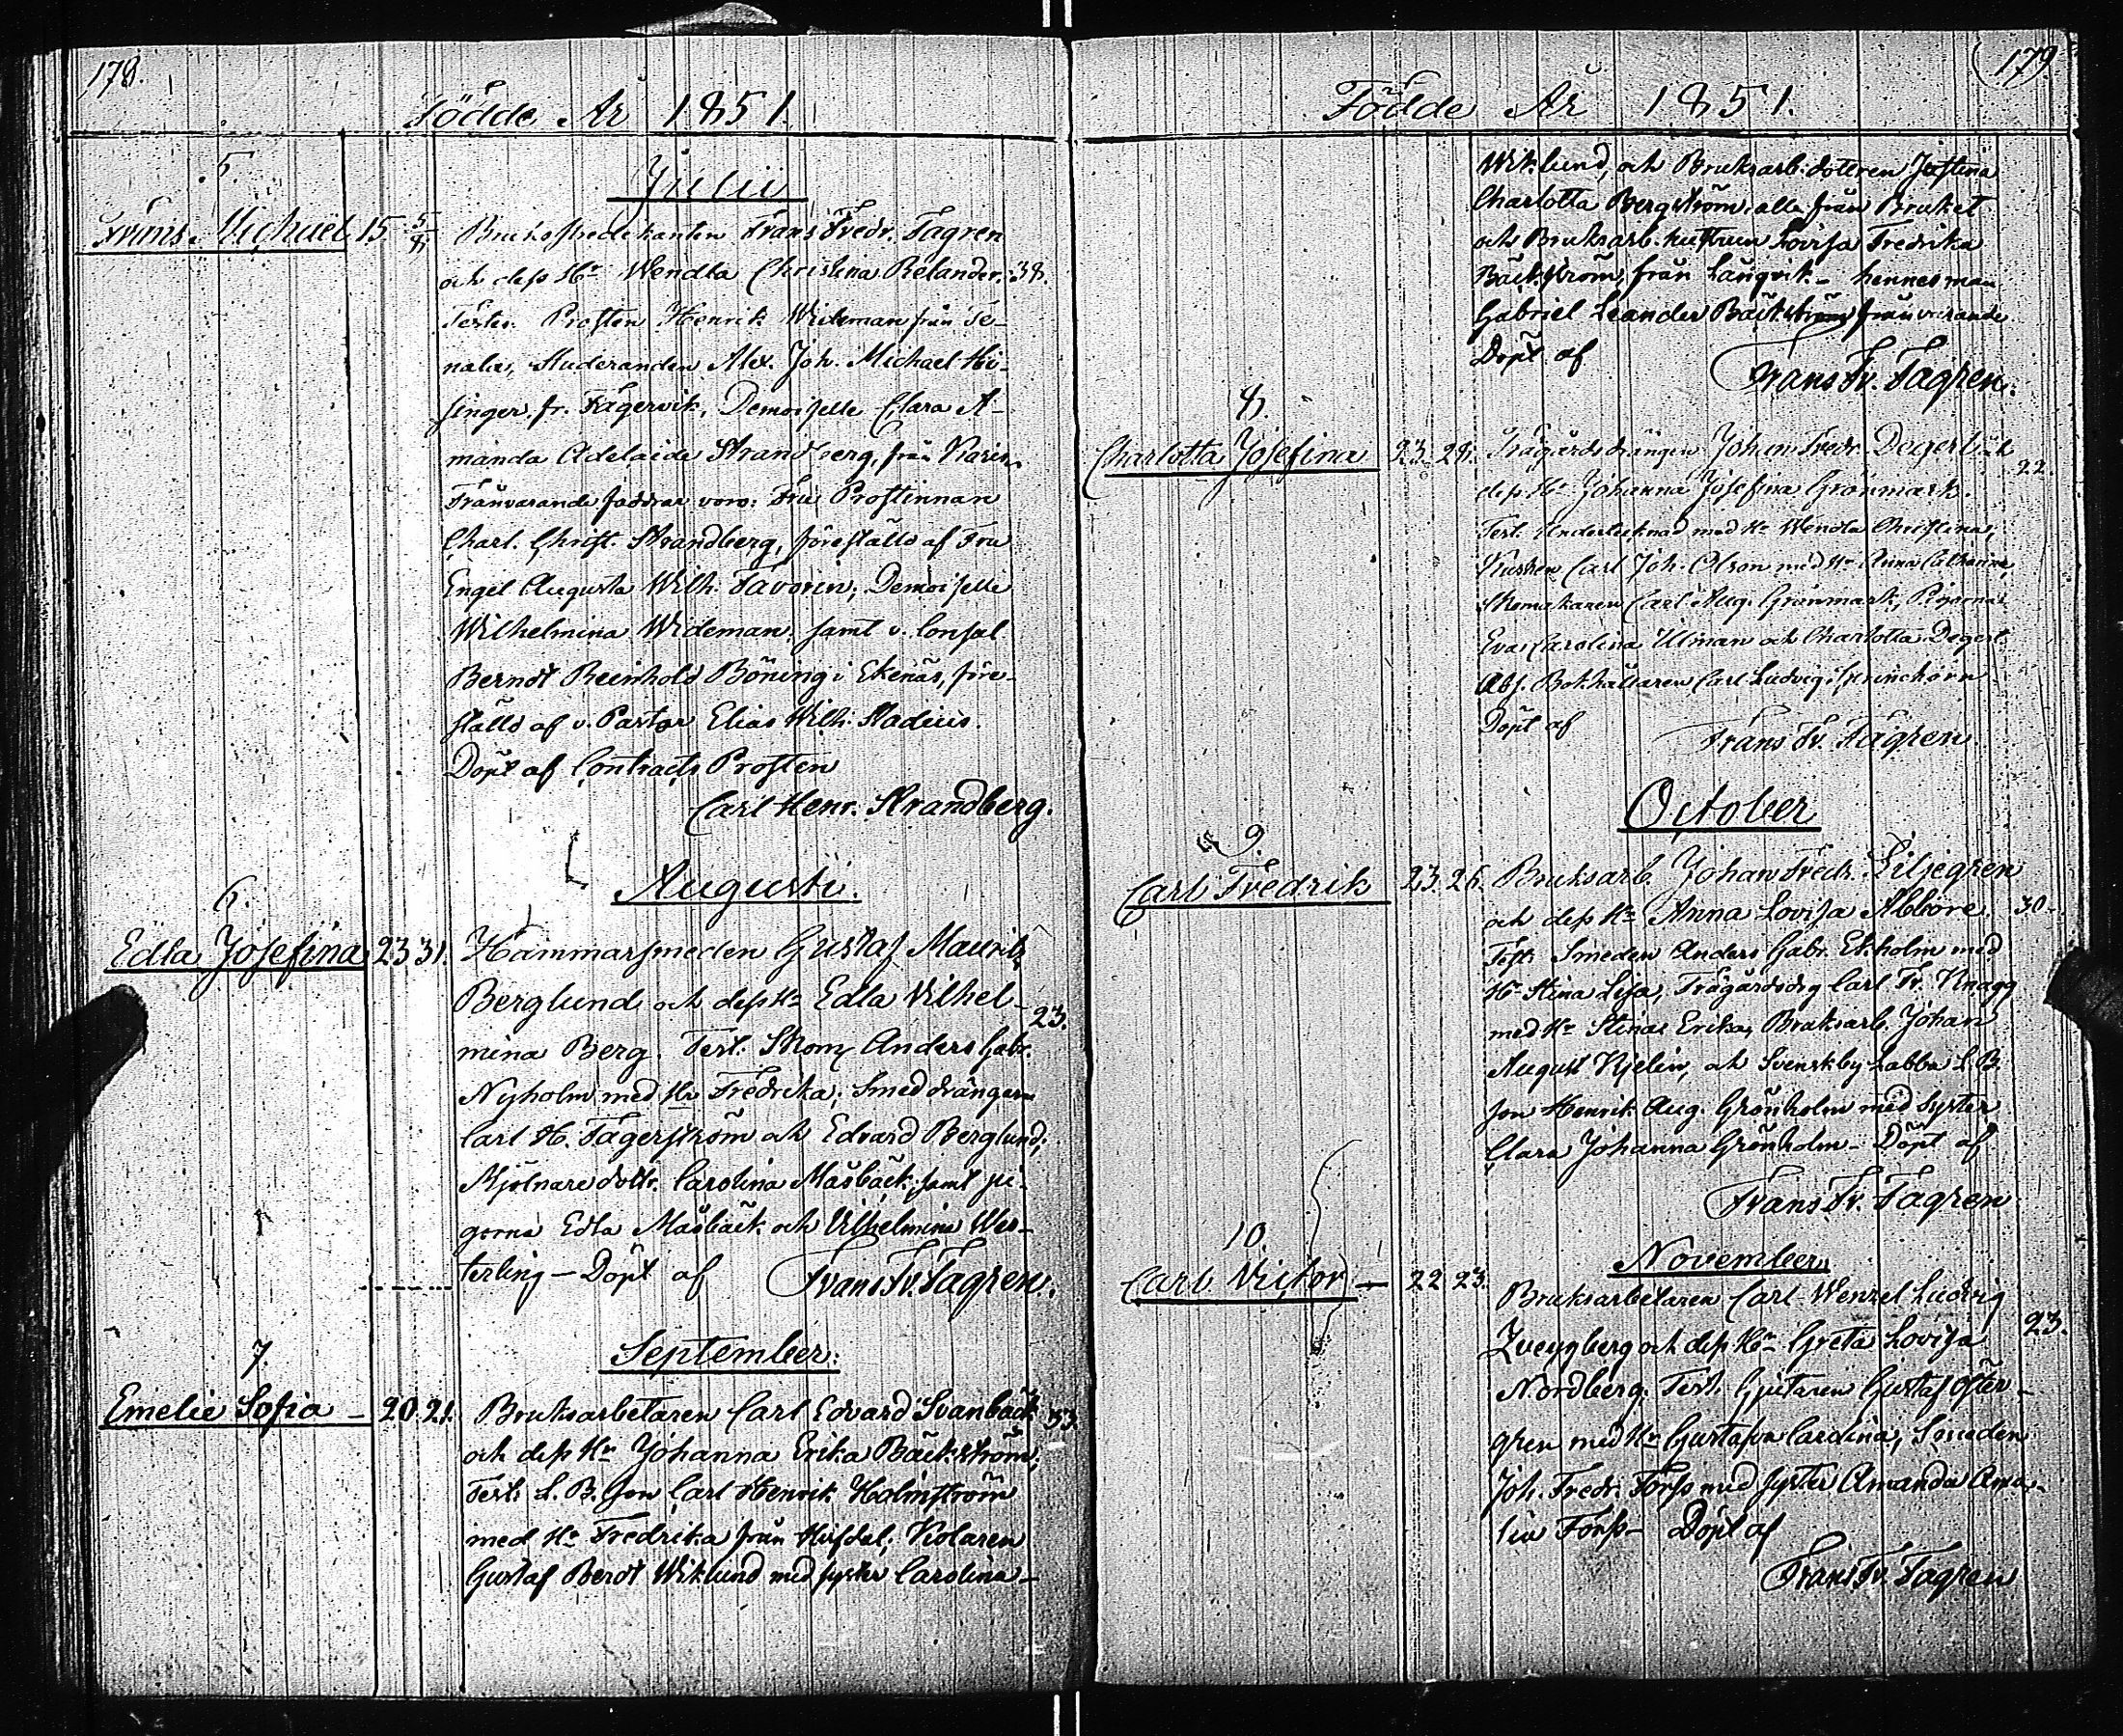 178.
Födde År 1851.
5.
Julii
Frans Michael 15 5/8 Bruks Predikanten Frans Fredr. Fagren
och dess Hu Wendla Christina Relander. 38.
Testes: Prosten Henrik Wideman från Te-
nala, Studeranden Alex. Joh. Michael Hi-
singer, fr. Fagervik, Demoiselle Clara A-
manda Adelaide Strandberg, från Karis.
Frånvarande faddrar voro: Fru Prostinnan
Charl. Christ. Strandberg, föreställd af Fru
Engel Augusta Wilh. Favorin; Demoiselle
Wilhelmina Wideman, samt v. Consul
Berndt Reinhold Böning i Ekenäs, före-
ställd af v. Pastor Elias Wilh. Stadius.
Döpt af Contracts Prosten
Carl Henr. Strandberg.
Augusti.
6.
Edla Josefina 23 31. Hammarsmeden Gustaf Maurits
Berglund och dess Hu Edla Vilhel-
23.
mina Berg. Test: Skom. Anders Gabr.
Nyholm med Hu Fredrika; Smeddrängarne
Carl H. Fagerström och Edvard Berglund;
Mjölnaredottr. Carolina Måsbäck, samt pi-
gorna Edla Måsbäck och Vilhelmina Wes-
terling – Döpt af Frans Fr. Fagren.
September.
7.
Emelie Sofia – 20. 21. Bruksarbetaren Carl Edvard Svanbäck 33.
och dess Hu Johanna Erika Bäckström;
Test: L. B. Son Carl Henrik Holmström
med Hu Fredrika från; Kolaren
Gustaf Berdt Wiklund med syster Carolina –
179.
Födde År 1851.
Wiklund, och Bruksarb. dotteren Justina
Charlotta Bergström, alla från Bruket
och Bruksarb. hustrun Lovisa Fredrika
Bäckström, från Långvik – hennes man
Gabriel Leander Bäckström frånvarande
Döpt af
Frans Fr. Fagren.
8.
Charlotta Josefina 23. 28. Trägårdsdrängen Johan Fredr. Degerl och
22.
dess Hu Johanna Josefina Grönmark.
Test: Undertecknad med Hu Wendla Christina,
Kusken Carl Joh. Olson med Hu Anna Catharina,
Skomakaren Carl Aug. Grönmark, Pigorna
Eva Carolina Ulman och Charlotta Degerl.
Abs. Bokhållaren Carl Ludvig
Döpt af
Frans Fr. Fagren
October
9.
Carl Fredrik 23. 26. Bruksarb. Johan Fredr. Liljegren
och dess Hu Anna Lovisa Abbore. 30.
Test: Smeden Anders Gabr. Ekholm med
Hu Stina Lisa, Trägårdsdrg Carl Fr. Knagg
med Hu Stina Erika, Bruksarb. Johan
August Kjelin, och Svenskby Labba L. B.
son Henrik Aug. Grönholm med syster
Clara Johanna Grönholm – Döpt af
Frans Fr. Fagren
November
10
Carl Victor – 22 23. Bruksarbetaren Carl Wenzel Ludvig
Zweygberg och dess Hu Greta Lovisa 23.
Nordberg; Test: Gjutaren Gustaf Öster-
gren med Hu Gustafva Carolina, Smeden
Joh. Fredr. Forss med syster Amanda Ama-
lia Forss – Döpt af
Frans Fr. Fagren